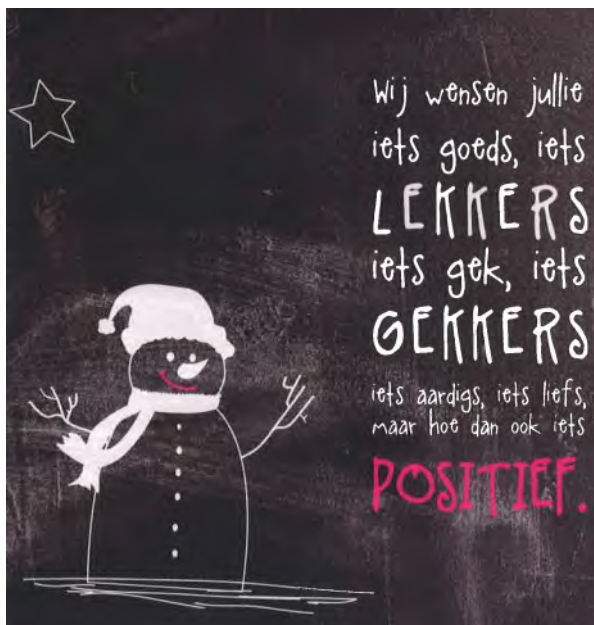 Wij wensen jullie
iets goeds, iets
LEKKERS
iets gek, iets
GEKKERS
iets aardigs, iets liefs,
maar hoe dan ook iets
POSITIEF.